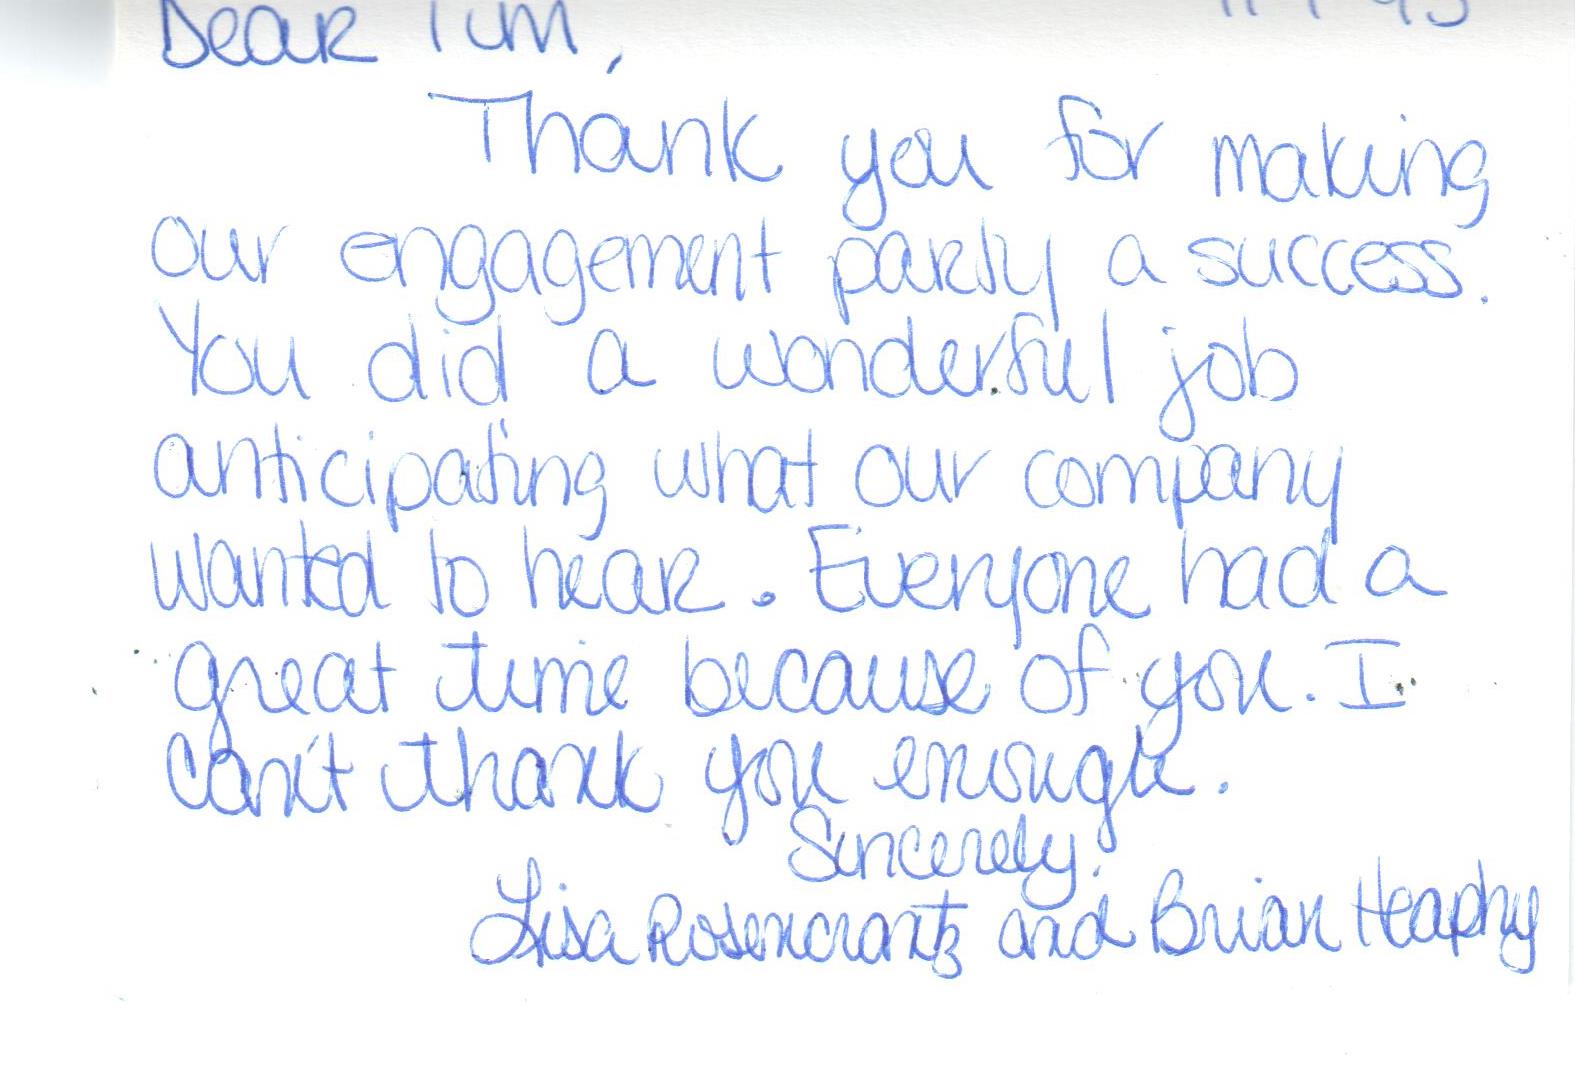 Dear Tim,
Thank you for making
our engagement party a success.
You did a wonderful job
anticipating what our company
wanted to hear. Everyone had a
great time because of you. I
can't thank you enough.
Sincerely,
Lisa Rosencrantz and Brian Heaphy